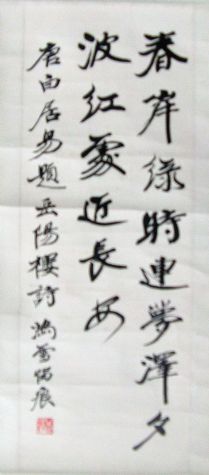 春岸綠時連夢澤夕
波紅處近長安
唐白居易題岳陽樓詩